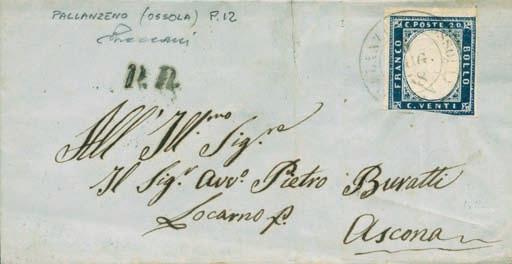 PALLANZENO (OSSOLA) P.12
P.D.
C. POSTE 20
FRANCO
BOLLO
C. VENTI
All' Ill.mo Sig.re
Il Sig.r Avvo. Pietro Buratti
Locarno p.
Ascona